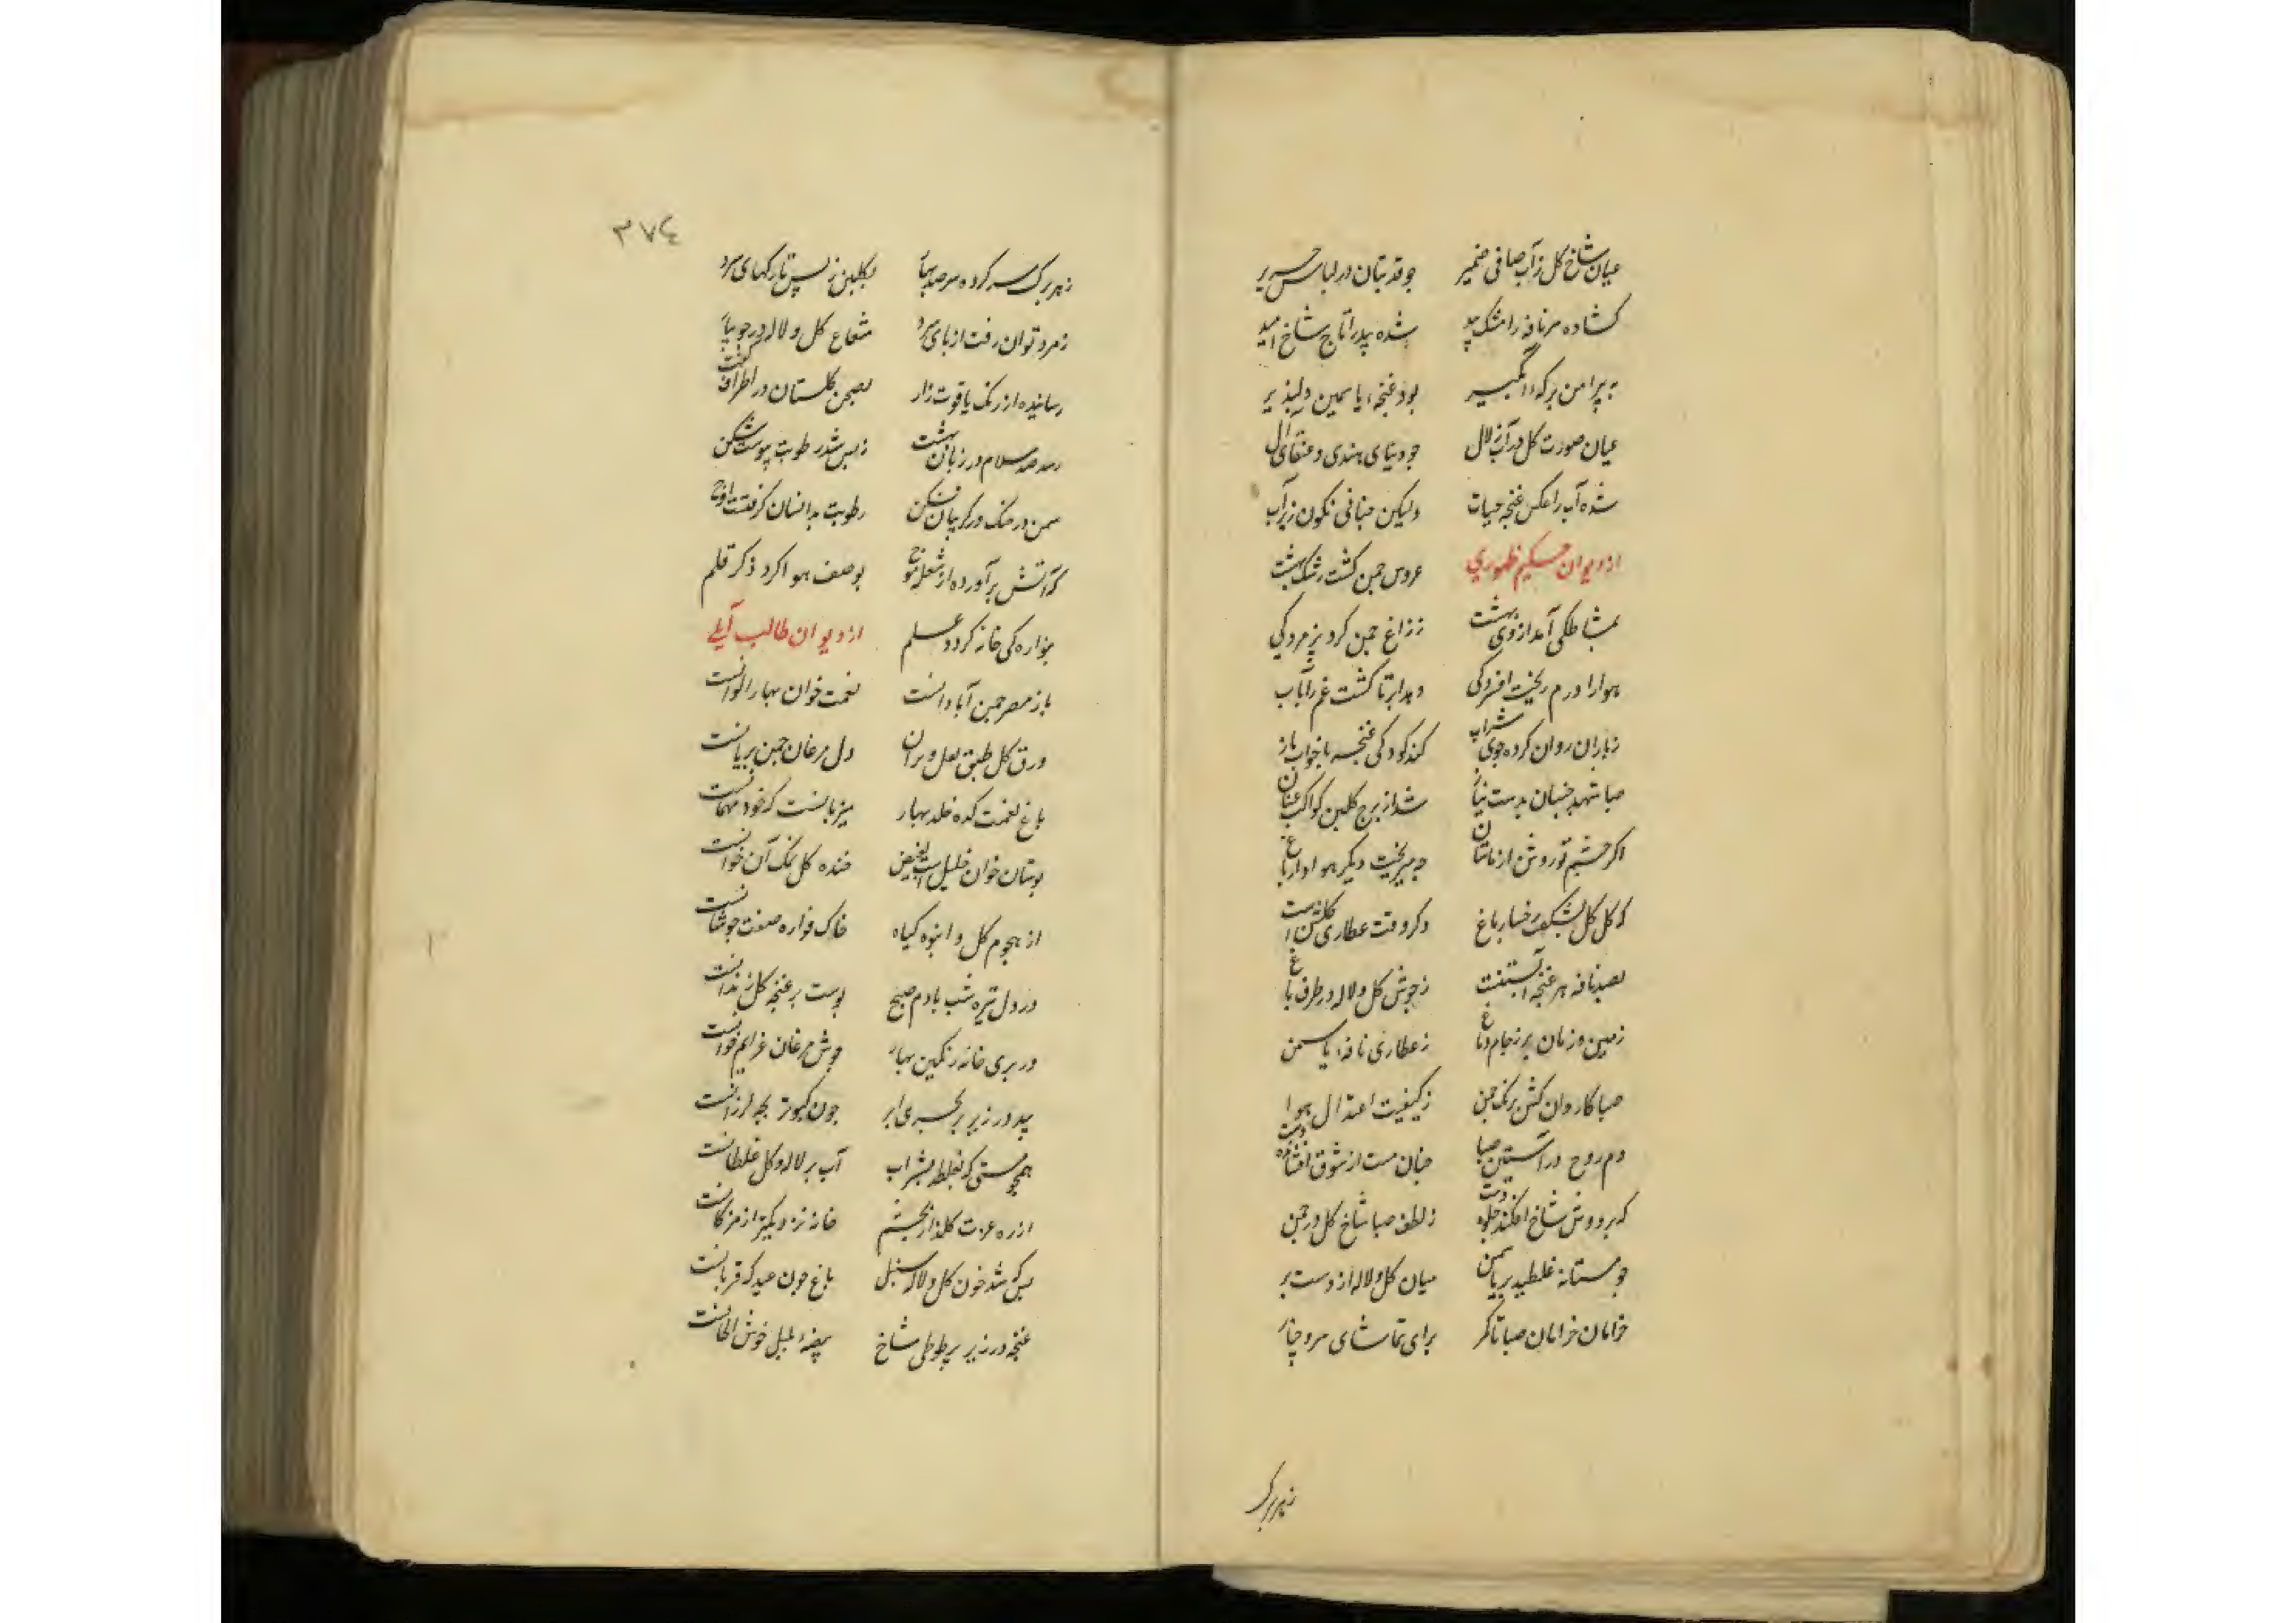 عیان شاخ کل ز آب صافی ضمیر جو قد بتان در لباس حریر
کشاده سر نافه را مشک بید شده پدر آتاج شاخ امید
به پیرامن برکهٔ آبگیر بود غنچهٔ یاسمین دلپذیر
عیان صورت کل در آب زلال جو دیبای هندی و عنقای ال
شده آب را عکس غنجه حیات ولیکن حبابی نکون زیر آب
از دیوان حکیم ظهوری عروس جمن کشت رشک بهشت
بمشاطکی آمد از وی بهشت ز زاغ جمن کرد پژمردکی
هوا را درم ریخت افسردکی دهد ابر تا کشت غم را بآب
ز باران روان کرده جوی شراب کند کودکی غنجه با خواب ناز
صبا مهد جنبان بدست نیاز شد از برج کلبن کواکب عنان
اکر جشم تو روشن از ماتتان جه میریخت دیکر هوا در ایاغ
که کل کل شکفت رخسار باغ دکر وقت عطاری کلشن است
بصد نافه هر غنجه آبستنست ز جوش کل و لاله در طرف باغ
زمین و زمان پر ز جام و ایاغ ز عطاری نافهٔ یاسمن
صبا کاروان کش برنک جمن ز کیفیت اعتدال هوا
دم روح در آستین صبا جنان مست از شوق افشانده دست
که بر دوش شاخ افکند جلوه دست ز لطف صبا شاخ کل در جمن
جو مستانه غلطید بر یاسمن میان کل و لاله از دست بر
خرامان خرامان صبا تا کمر برای تماشای سرو جنار
ز هر برک
۳۷۴
ز هر برک سر کرده سر صد بهار بکلبن ز بس تا رکهای سرد
زمرد توان رفت از پای سرد شعاع کل و لاله در جویبار
رسانیده از رنک یاقوت زار بصحن کلستان در اطراف کشت
رسد صد سلام از زبان بهشت ز بس شد رطوبت پیوست شکن
سمن در سنک در کریبان فکن رطوبت بدانسان کرفتست اوج
که آتش برآورده از شعله موج بوصف هوا کرد ذکر قلم
بواره کی خانه کردد علم از دیوان طالب آملی
باز مصر جمن آبادانست نعمت خوان بهار الوانست
ورق کل طبق لعل و بر آن دل مرغان جمن بریانست
باغ نعمت کده خلد بهار میزبانست که خود مهمانست
بوستان خوان خلیل است بفیض خنده کل نمک آن خوانست
از هجوم کل و انبوه کیاه خاک فواره صفت جوشانست
در دل تیره شب با دم صبح پوست بر غنجه کل زندانست
در پری خانه رنکین بهار جوش مرغان عزایم خوانست
بید در زیر پر کبری ابر جون کبوتر بجه لرزانست
همجو مستی که بغلطد بشراب آب بر لاله و کل غلطانست
از ره عزت کلزار بجشم خانه نزدیکتر از مژکانست
بسکه شد خون کل و لاله سبیل باغ جون عید که قربانست
غنجه در زیر پر طوطی شاخ بیضهٔ بلبل خوش الحانست